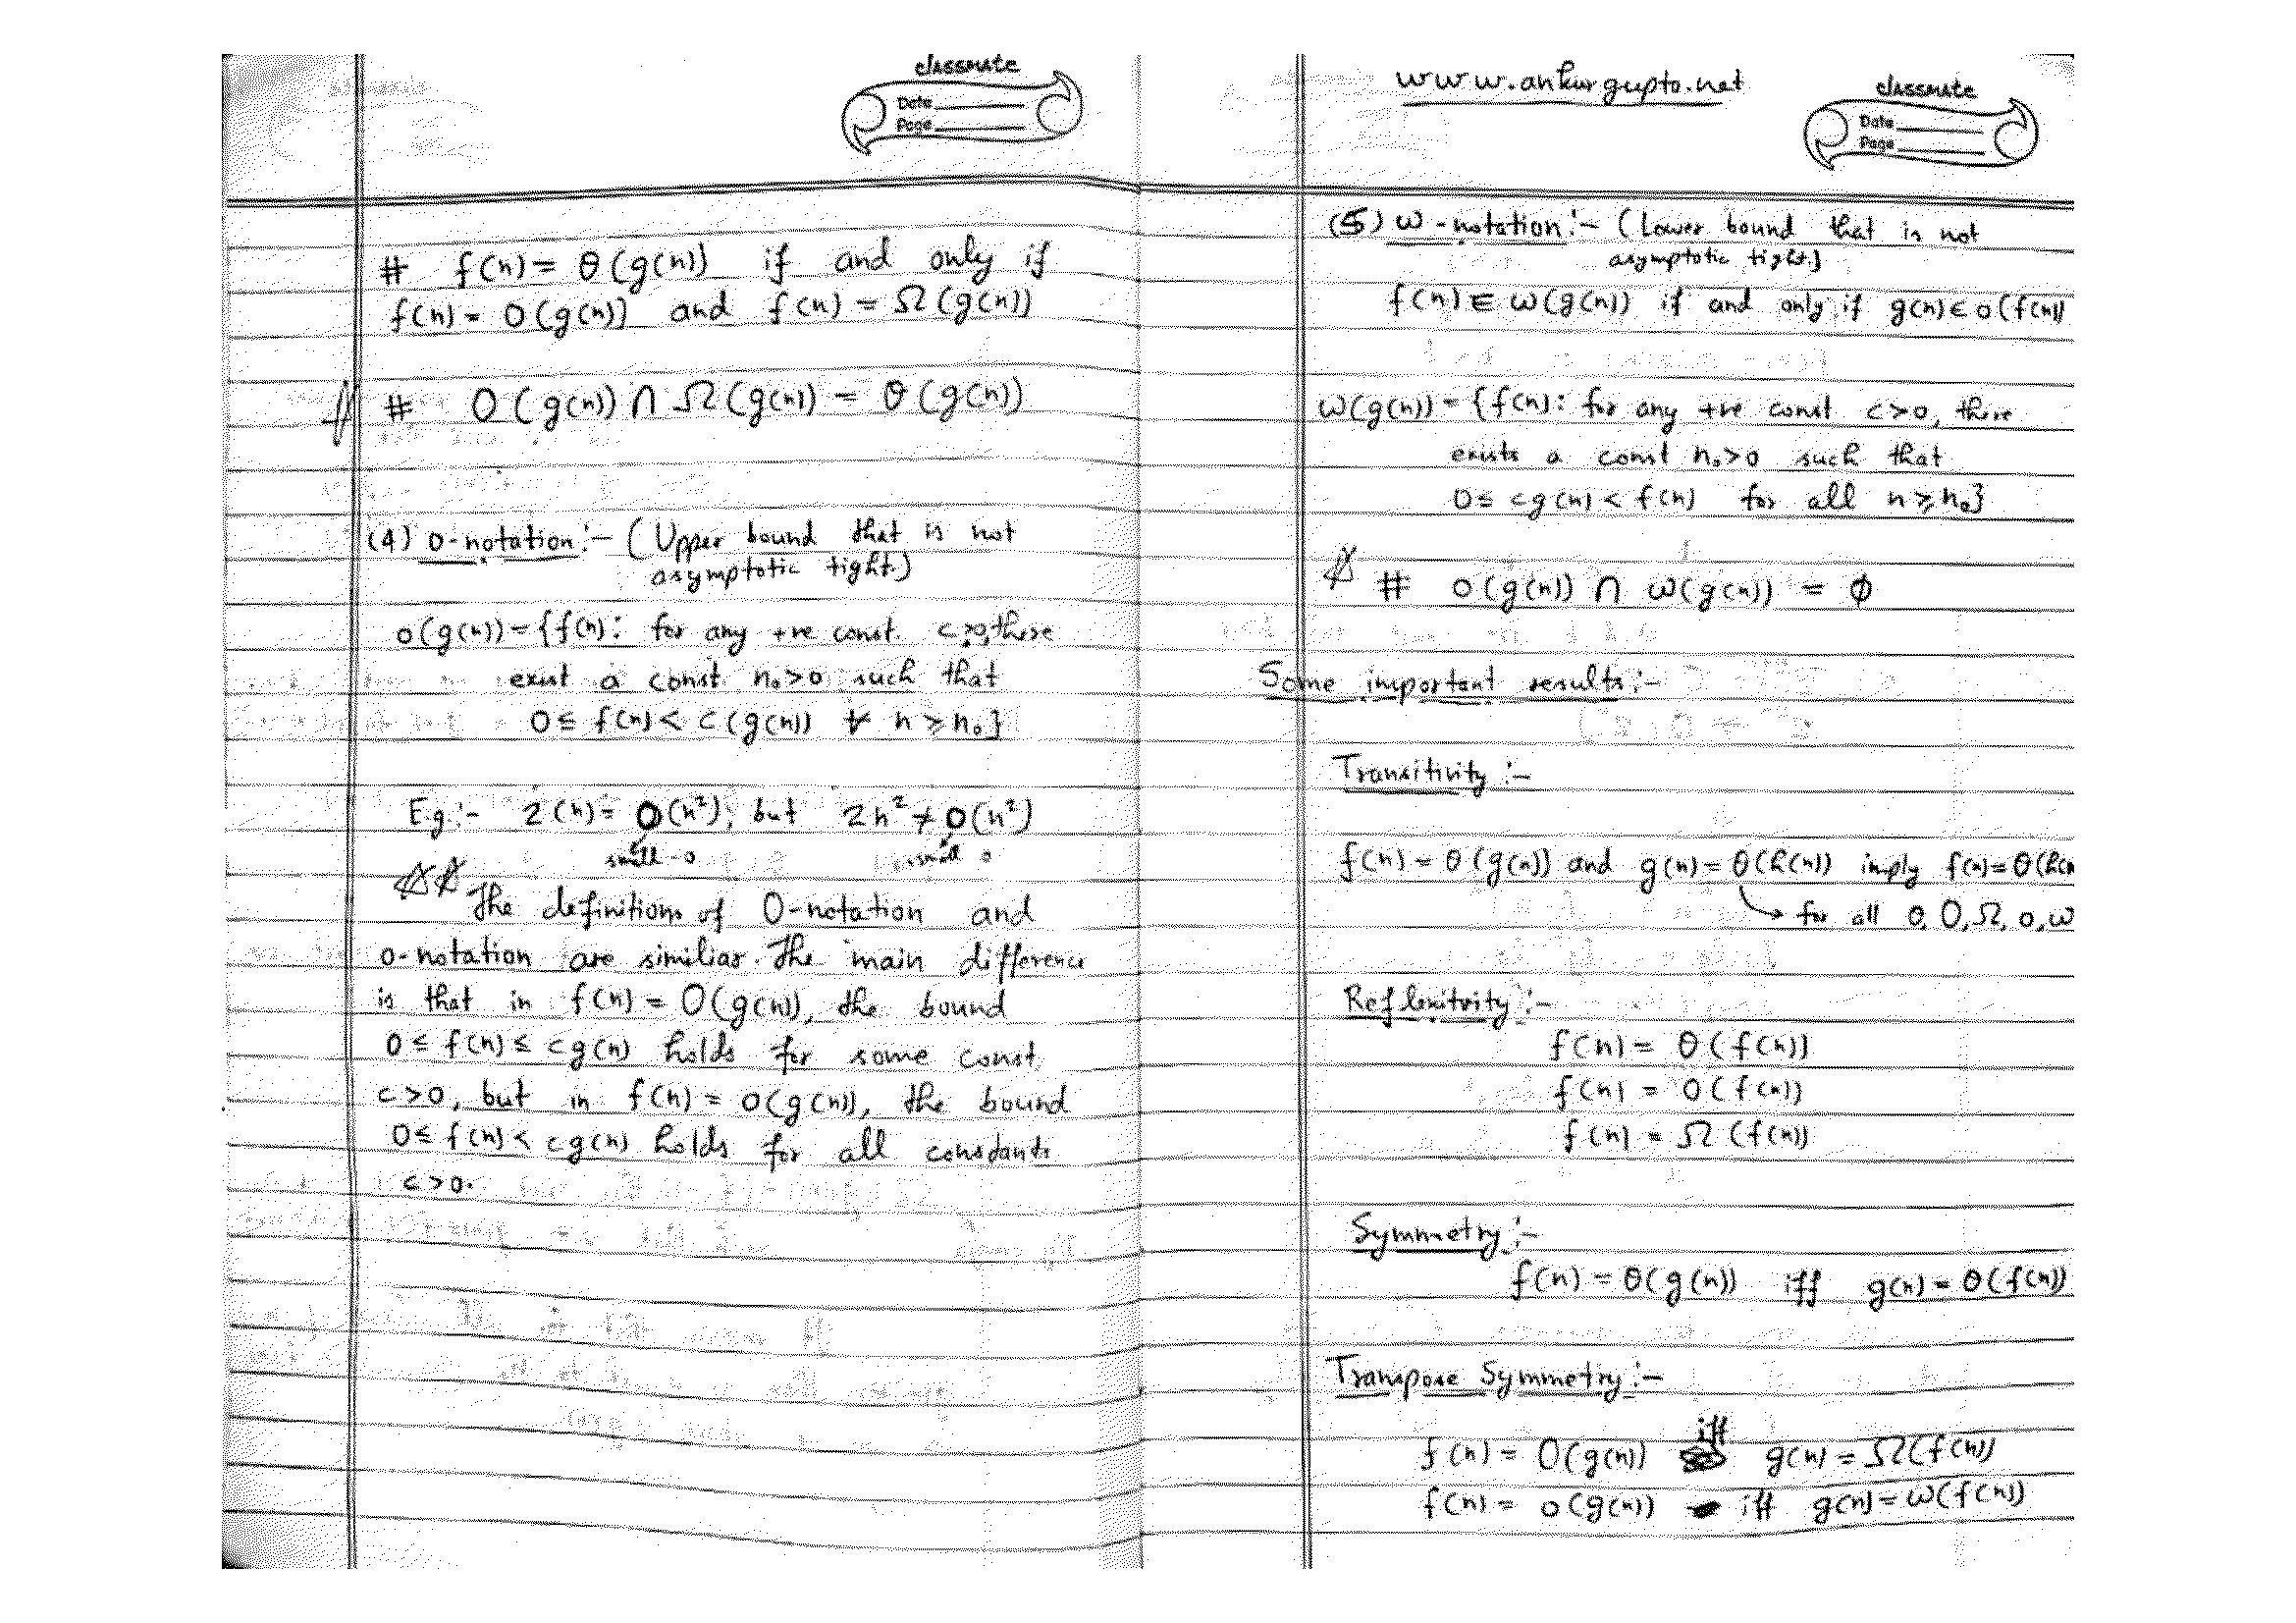 classmate
Date
Page
# f(n) = θ(g(n)) if and only if
f(n) = O(g(n)) and f(n) = Ω(g(n))
# O(g(n)) ∩ Ω(g(n)) = θ(g(n))
(4) o-notation:- (Upper bound that is not
asymptotic tight.)
o(g(n)) = {f(n): for any +ve const. c>0, there
exist a const n₀>0 such that
0 ≤ f(n) < c(g(n)) ∀ n ≥ n₀}
E.g:- 2(n) = o(n²); but 2n² ≠ o(n²)
small -o small o
The definitions of O-notation and
o-notation are similiar. The main difference
is that in f(n) = O(g(n)), the bound
0 ≤ f(n) ≤ cg(n) holds for some const.
c>0, but in f(n) = o(g(n)), the bound
0 ≤ f(n) < cg(n) holds for all constants
c>0.
www.ankurgupta.net
classmate
Date
Page
(5) ω-notation:- (Lower bound that is not
asymptotic tight.)
f(n) ∈ ω(g(n)) if and only if g(n) ∈ o(f(n))
ω(g(n)) = {f(n): for any +ve const c>0, there
exists a const n₀>0 such that
0 ≤ cg(n) < f(n) for all n ≥ n₀}
# o(g(n)) ∩ ω(g(n)) = ϕ
Some important results:-
Transitivity:-
f(n) = θ(g(n)) and g(n) = θ(h(n)) imply f(n) = θ(h(n
for all θ, O, Ω, o, ω
Reflexitvity:-
f(n) = θ(f(n))
f(n) = O(f(n))
f(n) = Ω(f(n))
Symmetry:-
f(n) = θ(g(n)) iff g(n) = θ(f(n))
Transpose Symmetry:-
f(n) = O(g(n)) iff g(n) = Ω(f(n))
f(n) = o(g(n)) iff g(n) = ω(f(n))